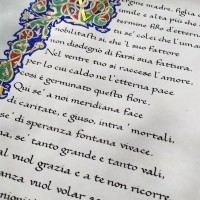 gine madre, figlia d
umile e alta più che
termine fisso d'eterno
tu se' colei che l'uman
nobilitasti sì, che 'l suo fattore
non disdegnò di farsi sua fattura.
Nel ventre tuo si raccese l'amore,
per lo caldo ne l'etterna pace
così è germinato questo fiore.
Qui se' a noi meridiana face
di caritate, e giuso, intra ' mortali,
se' di speranza fontana vivace.
na, se' tanto grande e tanto vali,
al vuol grazia e a te non ricorre
anza vuol volar se